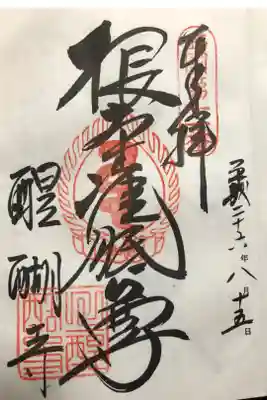 平成二十六年八月十五日
奉拝
根本准胝尊
醍醐寺